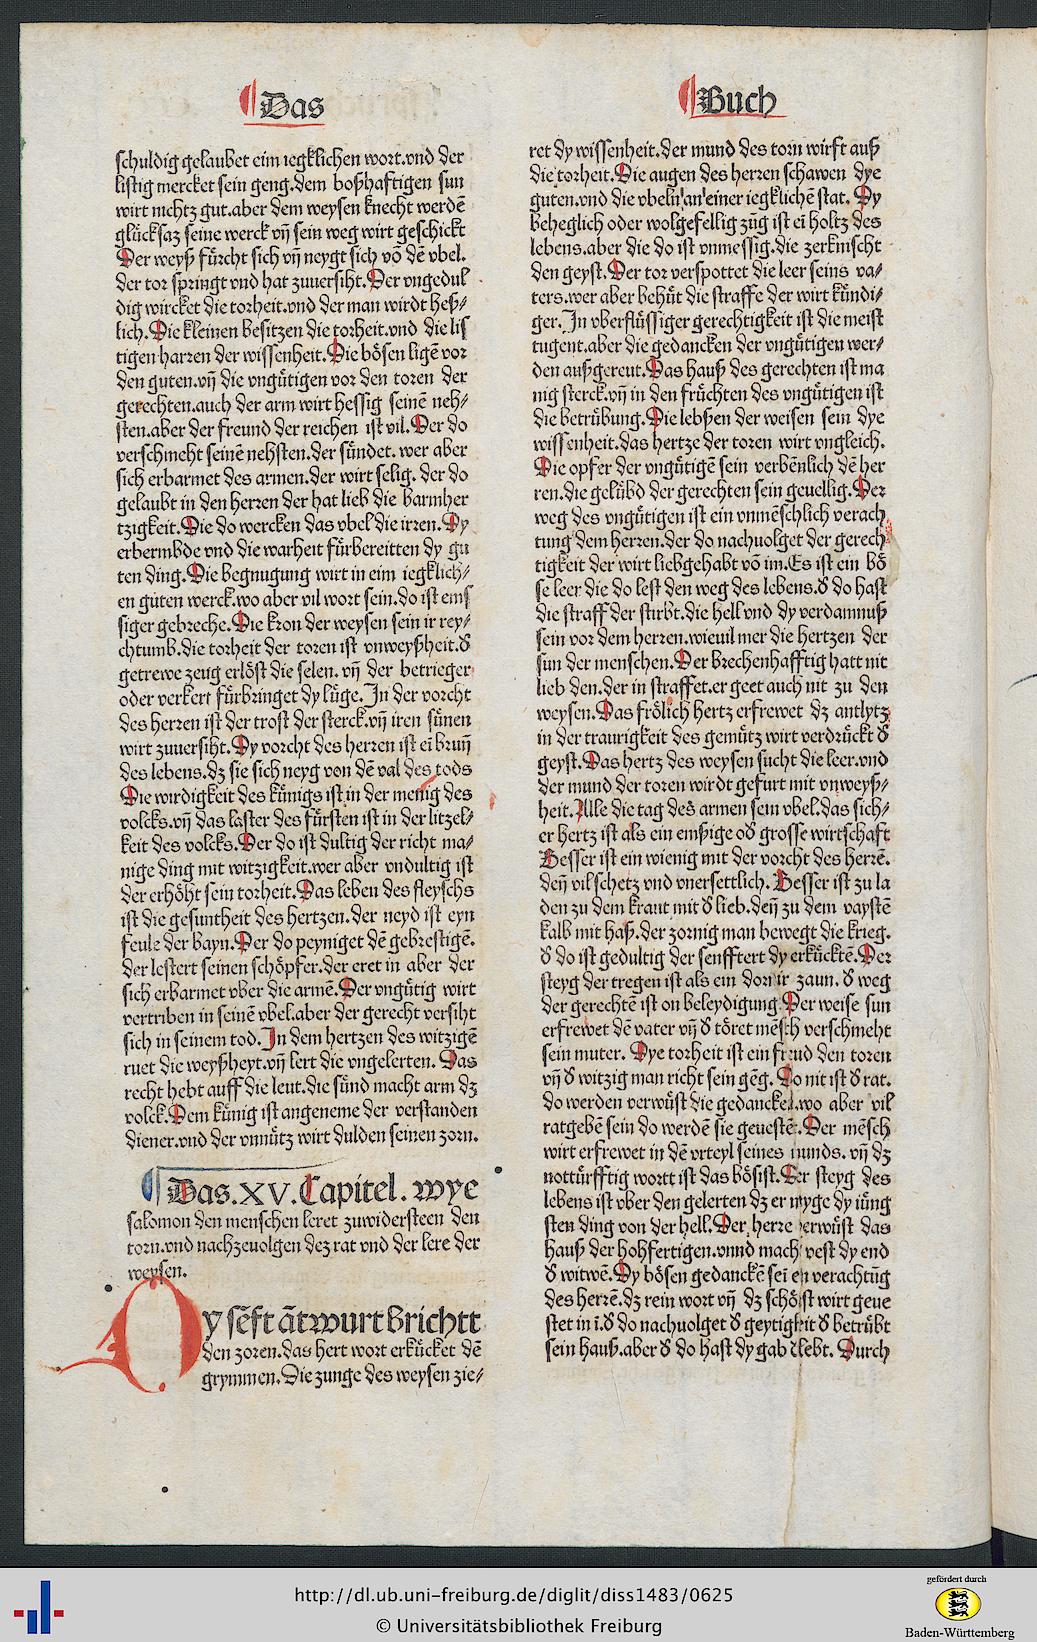 Das
Buch
schuldig gelaubet eim iegklichen wort.vnd der
listig mercket sein geng.dem boßhaftigen sun
wirt nichtz gut.aber dem weysen knecht werdē
glücksaz seine werck vn̄ sein weg wirt geschickt
Der weyß fürcht sich vn̄ neygt sich vō dē vbel.
der tor springt vnd hat zuuersiht.Der vngedul
dig wircket die torheit.vnd der man wirdt heß⸗
lich.Die kleinen besitzen die torheit.vnd die lis
tigen harren der wissenheit.Die bösen ligē vor
den guten.vn̄ die vngütigen vor den toren der
gerechten.auch der arm wirt hessig seinē neh⸗
sten.aber der freund der reichen ist vil.Der do
verschmeht seinē nehsten.der sündet.wer aber
sich erbarmet des armen.der wirt selig.der do
gelaubt in den herren der hat lieb die barmher
tzigkeit.Die do wercken das vbel die irren.Dy
erbermbde vnd die warheit fürbereitten dy gu
ten ding.Die begnugung wirt in eim iegklich⸗
en guten werck.wo aber vil wort sein.do ist ems
siger gebreche.Die kron der weysen sein ir rey⸗
chtumb.die torheit der toren ist vnweyßheit.d̕
getrewe zeug erlöst die selen.vn̄ der betrieger
oder verkert fürbringet dy lüge.In der vorcht
des herren ist der trost der sterck.vn̄ iren sünen
wirt zuuersiht.Dy vorcht des herren ist ei brun̄
des lebens.dz sie sich neyg von dē val des tods
Die wirdigkeit des künigs ist in der menig des
volcks.vn̄ das laster des fürsten ist in der litzel⸗
keit des volcks.Der do ist dultig der richt ma⸗
nige ding mit witzigkeit.wer aber vndultig ist
der erhöht sein torheit.Das leben des fleyschs
ist die gesuntheit des hertzen.der neyd ist eyn
feule der bayn.Der do peyniget dē gebrestigē.
der lestert seinen schöpfer.der eret in aber der
sich erbarmet vber die armē.Der vngütig wirt
vertriben in seinē vbel.aber der gerecht versiht
sich in seinem tod.In dem hertzen des witzigē
ruet die weyßheyt.vn̄ lert die vngelerten.Das
recht hebt auff die leut.die sünd macht arm dz
volck.Dem künig ist angeneme der verstanden
diener.vnd der vnnütz wirt dulden seinen zorn.
Das.XV.Capitel.wye
salomon den menschen leret zuwidersteen den
torn.vnd nachzeuolgen dez rat vnd der lere der
weysen.
Dy sēft ātwurt brichtt
den zoren.das hert wort erkücket dē
grymmen.Die zunge des weysen zie⸗
ret dy wissenheit.der mund des torn wirft auß
die torheit.Die augen des herren schawen dye
guten.vnd die vbeln an einer iegklichē stat.Dy
beheglich oder wolgefellig zūg ist ei holtz des
lebens.aber die do ist vnmessig.die zerknischt
den geyst.Der tor verspottet die leer seins va⸗
ters.wer aber behüt die straffe der wirt kündi⸗
ger.In vberflüssiger gerechtigkeit ist die meist
tugent.aber die gedancken der vngütigen wer⸗
den außgereut.Das hauß des gerechten ist ma
nig sterck.vn̄ in den früchten des vngütigen ist
die betrübung.Die lebßen der weisen sein dye
wissenheit.das hertze der toren wirt vngleich.
Die opfer der vngütigē sein verbēnlich dē her
ren.die gelübd der gerechten sein geuellig.Der
weg des vngütigen ist ein vnmēschlich verach
tung dem herren.der do nachuolget der gerech⸗
tigkeit der wirt liebgehabt vō im.Es ist ein bö
se leer die do lest den weg des lebens.d̕ do hast
die straff der stirbt.die hell vnd dy verdamnuß
sein vor dem herren.wieuil mer die hertzen der
sun der menschen.Der brechenhafftig hatt nit
lieb den.der in straffet.er geet auch nit zu den
weysen.Das frölich hertz erfrewet dz antlytz
in der traurigkeit des gemütz wirt verdrückt d̕
geyst.Das hertz des weysen sucht die leer.vnd
der mund der toren wirdt gefurt mit vnweyß⸗
heit.Alle die tag des armen sein vbel.das sich⸗
er hertz ist als ein emßige od̕ grosse wirtschaft
Besser ist ein wienig mit der vorcht des herrē.
den̄ vil schetz vnd vnersettlich.Besser ist zu la
den zu dem kraut mit d̕ lieb.den̄ zu dem vaystē
kalb mit haß.der zornig man bewegt die krieg.
d̕ do ist gedultig der senfftert dy erkücktē.Der
steyg der tregen ist als ein dorn ir zaun.d̕ weg
der gerechtē ist on beleydigung.Der weise sun
erfrewet dē vater vn̄ d̕ töret mēsch verschmeht
sein muter.Dye torheit ist ein freud den toren
vn̄ d̕ witzig man richt sein gēg.Do nit ist d̕ rat.
do werden verwüst die gedancken.wo aber vil
ratgebē sein do werdē sie geuestē.Der mēsch
wirt erfrewet in dē vrteyl seines munds.vn̄ dz
nottürfftig wortt ist das bösist.Der steyg des
lebens ist vber den gelerten dz er myge dy iüng
sten ding von der hell.Der herre verwüst das
hauß der hohfertigen.vnnd mach vest dy end
d̕ witwē.Dy bösen gedanckē sei en verachtūg
des herrē.dz rein wort vn̄ dz schönst wirt geue
stet in i.d̕ do nachuolget d̕ geytigkeit d̕ betrübt
sein hauß.aber d̕ do hast dy gab d̕ lebt.Durch
http://dl.ub.uni-freiburg.de/diglit/diss1483/0625
© Universitätsbibliothek Freiburg
gefördert durch
Baden-Württemberg